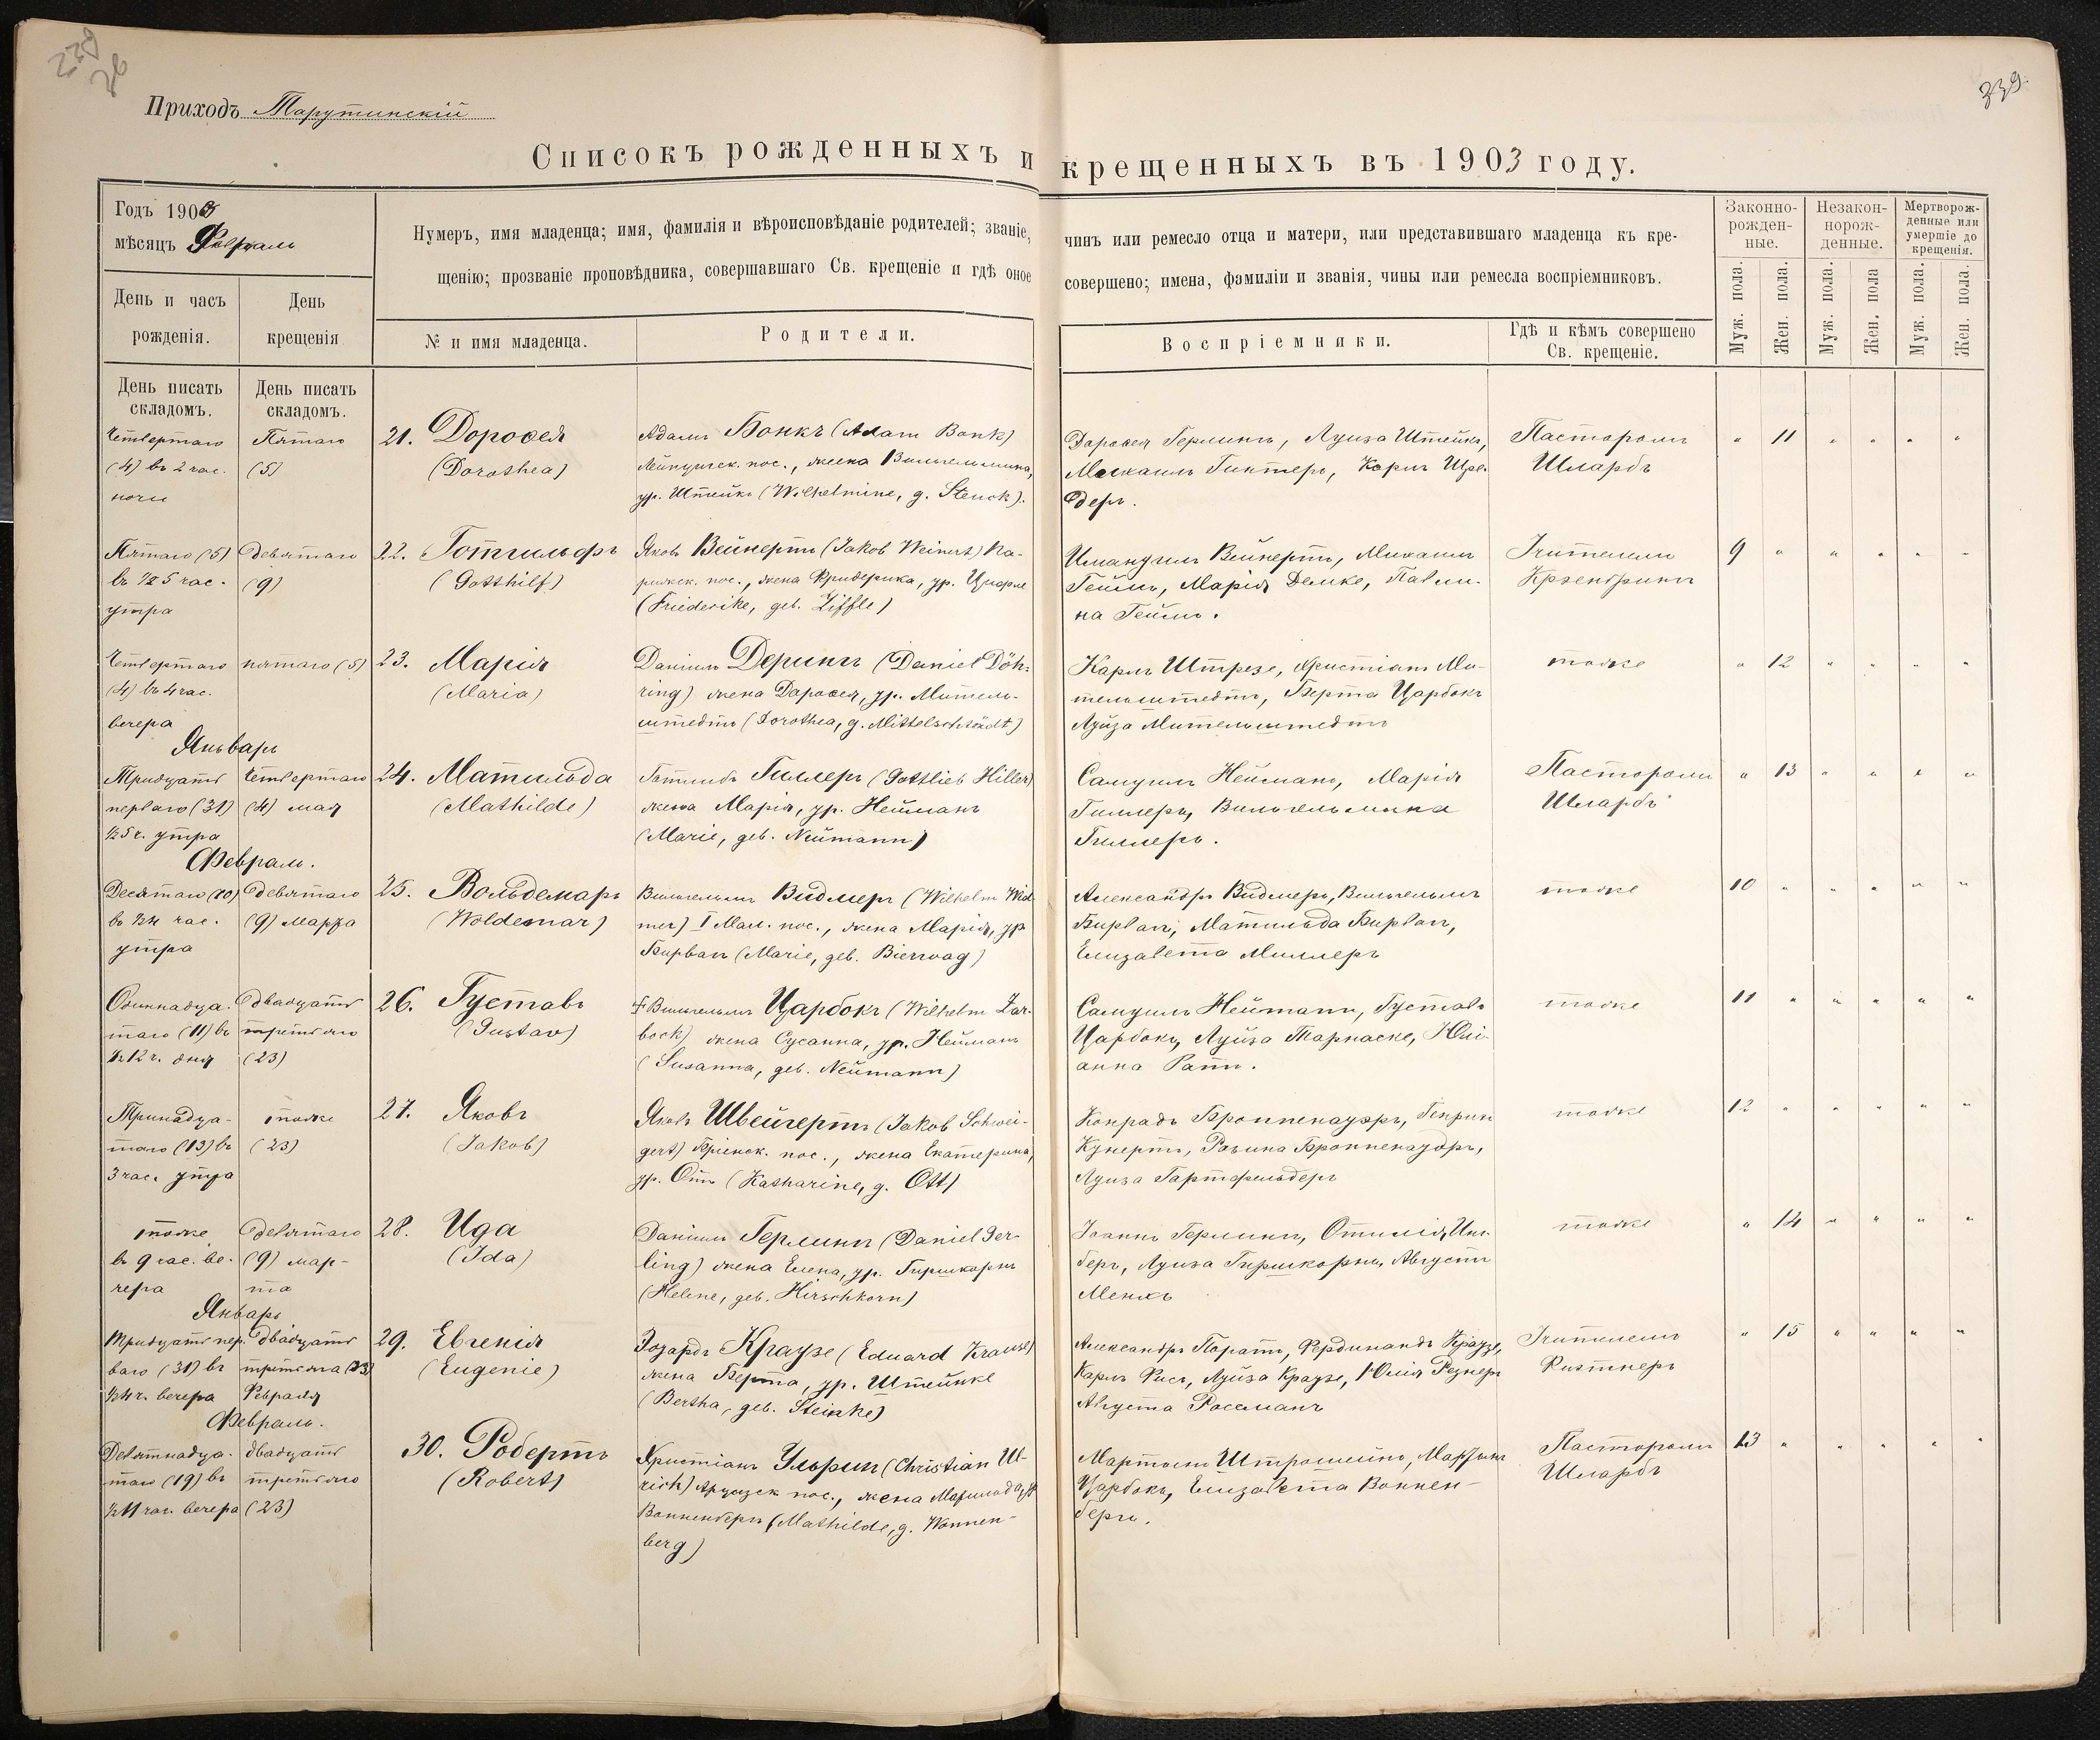 339
Приходъ Тарутинскій
Списокъ рожденныхъ и крещенныхъ въ 1903 году.
Годъ 1903
мѣсяцъ Февраль
День и часъ
рожденія.
День
крещенія
Нумеръ, имя младенца; имя, фамилія и вѣроисповѣданіе родителей; званіе, чинъ или ремесло отца и матери, или представившаго младенца къ кре-
щенію; прозваніе проповѣдника, совершавшаго Св. крещеніе и гдѣ оное совершено; имена, фамиліи и званія, чины или ремесла воспріемниковъ.
№ и имя младенца.
Родители.
Воспріемники.
Гдѣ и кѣмъ совершено
Св. крещеніе.
Законно-
рожден-
ные.
Незакон-
норож-
денные.
Мертворож-
денные или
умершіе до
крещенія.
Муж. пола.
Жен. пола.
Муж. пола.
Жен. пола
Муж. пола.
Жен. пола.
День писать
складомъ.
День писать
складомъ.
Четвертаго
(4) въ 2 час.
ночи
Пятаго
(5)
21. Доровея
(Dorothea)
Адамъ Бонкъ (Adam Bonk)
Лейпцигск. пос., жена Вильгельмина,
ур. Штейкъ (Wilhelmine, g. Steuck).
Доровея Герлингъ, Луиза Штейкъ,
Михаилъ Гинтеръ, Карлъ Шре-
деръ.
Пасторомъ
Шлардъ
" 11 " " " "
Пятаго (5)
въ ½ 5 час.
утра
девятаго
(9)
22. Готгильфъ
(Gotthilf)
Яковъ Вейнертъ (Jakob Weinert) Па-
рижск. пос., жена Фридерика, ур. Цифле
(Friederike, geb. Ziffle)
Имануилъ Вейнертъ, Михаилъ
Геймъ, Марія Демке, Павли-
на Геймъ.
Учителемъ
9 " " " " "
Четвертаго
(4) въ 4 час.
вечера
пятаго (5)
23. Марія
(Maria)
Даніилъ Дерингъ (Daniel Döh-
ring) жена Доровея, ур. Мительштедтъ (Dorothea, g. Mittelschtädt)
Карлъ Штрезе, Христіанъ Ми-
тельштедтъ, Берта Царбокъ
Луйза Мительштедтъ
тоже
" 12 " " " "
Январь
Тридцать
перваго (31)
½ 5 ч. утра
Четвертаго
(4) мая
24. Матильда
(Mathilde)
Готлибъ Гиллеръ (Gottlieb Hiller)
жена Марія, ур. Нейманъ
(Marie, geb. Neümann)
Самуилъ Нейманъ, Марія
Гиллеръ, Вильгельмина
Гиллеръ.
Пасторомъ
Шлардъ
" 13 " " " "
Февраль.
Десятаго (10)
въ ½ 4 час.
утра
девятаго
(9) марта
25. Вольдемаръ
(Woldemar)
Вильгельмъ Видмеръ (Wilhelm Wid-
mer) I Мал. пос., жена Марія, ур
Бирвагъ (Marie, geb. Bierwag)
Александръ Видмеръ, Вильгельмъ
Бирвагъ, Матильда Бирвагъ,
Елизавета Миллеръ
тоже
10 " " " " "
Одиннадца-
таго (11) въ
12 ч. дня
двадцать
третьяго
(23)
26. Густавъ
(Gustav)
+ Вильгельмъ Царбокъ (Wilhelm Zar-
bock) жена Сусанна, ур. Нейманъ
(Susanna, geb. Neümann)
Самуилъ Нейманъ, Густавъ
Царбокъ, Луйза Тарнаске, Юлі-
анна Раттъ.
тоже
11 " " " " "
Тринадца-
таго (13) въ
3 час. утра
тоже
(23)
27. Яковъ
(Jakob)
Яковъ Швейгертъ (Jakob Schwei-
gert) Бріенск. пос., жена Екатерина,
ур. Оттъ (Katharine, g. Ott)
Конрадъ Броппенауэръ, Генрих
Кунертъ, Розина Броппенауэръ,
Луиза Гартфельдеръ
тоже
12 " " " " "
тоже
въ 9 час. ве-
чера
девятаго
(9) мар-
та
28. Ида
(Ida)
Даніилъ Герлингъ (Daniel Ger-
ling) жена Елена, ур. Гиршкорнъ
(Helene, geb. Hirschkorn)
Іоаннъ Герлингъ, Отилія Ун-
беръ, Луиза Гиршкорнъ, Августъ
Менкъ
тоже
" 14 " " " "
Январь
Тридцать пер-
ваго (31) въ
½ 4 ч. вечера
двадцать
третьяго (23)
Февраля
29. Евгенія
(Eugenie)
Эдуардъ Краузе (Eduard Krause)
жена Берта, ур. Штейнке
(Bertha, geb. Steinke)
Александръ Поратъ, Фердинандъ Краузе,
Карлъ Фисъ, Луйза Краузе, Юлія Резнеръ
Августа Россманъ
Учителемъ
Ризтнеръ
" 15 " " " "
Февраль.
Девятнадца-
таго (19) въ
½ 11 час. вечера
двадцать
третьяго
(23)
30. Робертъ
(Robert)
Христіанъ Ульрихъ (Christian Ul-
rich) Арцизск пос., жена Матильда, ур
Вонненбергъ (Mathilde, g. Wonnen-
berg)
Мартынъ Штрошейнъ, Мартынъ
Царбокъ, Елизавета Воннен-
бергъ.
Пасторомъ
Шлардъ
13 " " " " "